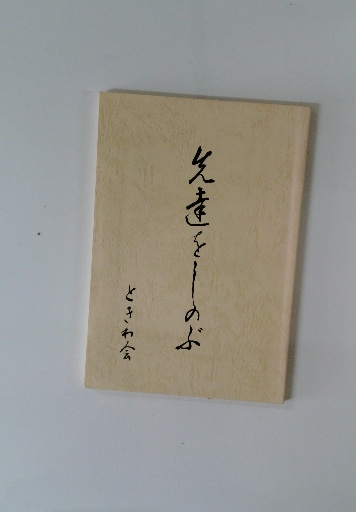 先達をしのぶ
ときわ会